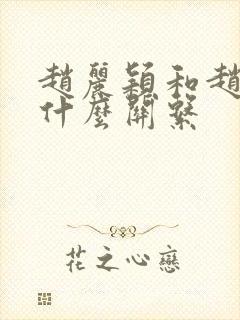 趙麗穎和趙
什麼關繫
花之心戀